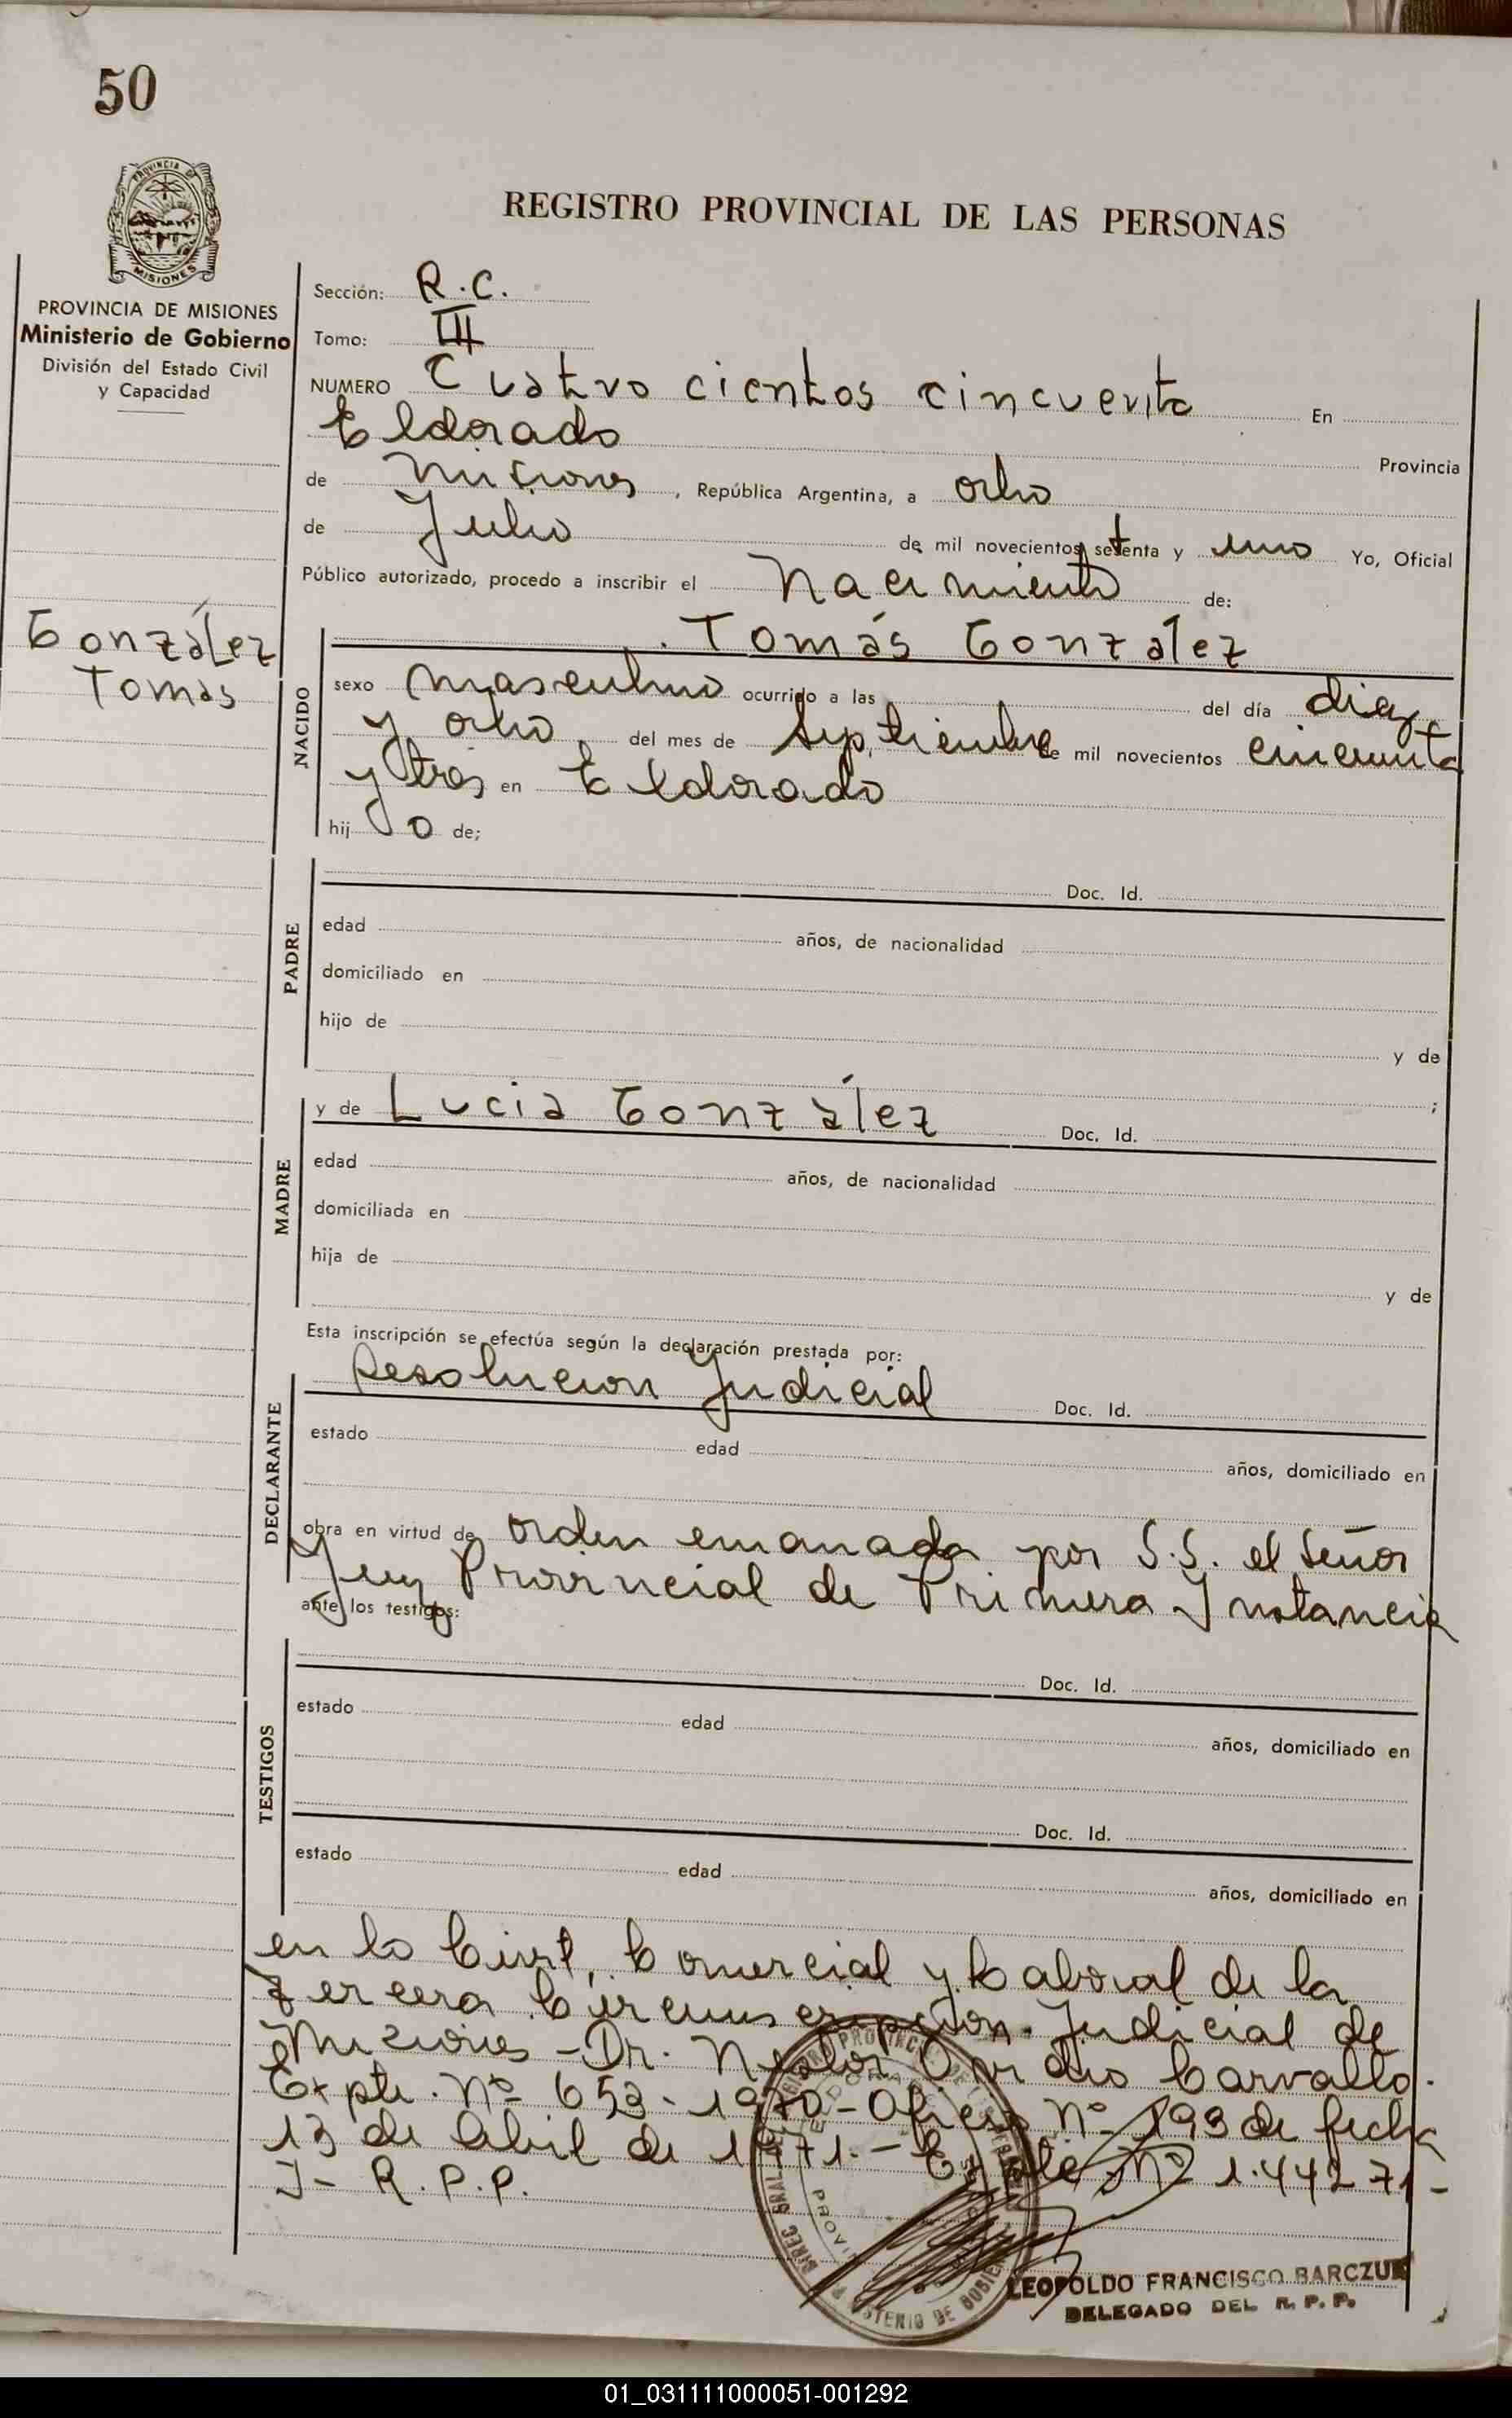 50
PROVINCIA DE
MISIONES
REGISTRO PROVINCIAL DE LAS PERSONAS
PROVINCIA DE MISIONES
Ministerio de Gobierno
División del Estado Civil
y Capacidad
Sección: R.C.
Tomo: III
NUMERO Cuatro cientos cincuenta En
Eldorado Provincia
de Misiones, República Argentina, a ocho
de Julio de mil novecientos setenta y uno Yo, Oficial
Público autorizado, procedo a inscribir el Nacimiento de:
González
Tomás
Tomás González
NACIDO
sexo masculino ocurrido a las del día diez
y ocho del mes de Septiembre de mil novecientos cincuenta
y tres en Eldorado
hij o de;
PADRE
Doc. Id.
edad años, de nacionalidad
domiciliado en
hijo de
y de
;
MADRE
y de Lucia González Doc. Id.
edad años, de nacionalidad
domiciliada en
hija de
y de
Esta inscripción se efectúa según la declaración prestada por:
DECLARANTE
Resolucion Judicial Doc. Id.
estado edad años, domiciliado en
obra en virtud de orden emanada por S.S. el Señor
Juez Provincial de Primera Instancia
ante los testigos:
TESTIGOS
Doc. Id.
estado edad años, domiciliado en
Doc. Id.
estado edad años, domiciliado en
en lo Civil, Comercial y Laboral de la
Tercera Circunscripción Judicial de
Misiones - Dr. Nestor Ovidio Carvallo.
Expte. Nº 653-1970 - Oficio Nº 193 de fecha
13 de Abril de 1971. - Expte Nº 1.442 71 -
J- R.P.P.
LEOPOLDO FRANCISCO BARCZUK
DELEGADO DEL R. P. P.
01_031111000051-001292